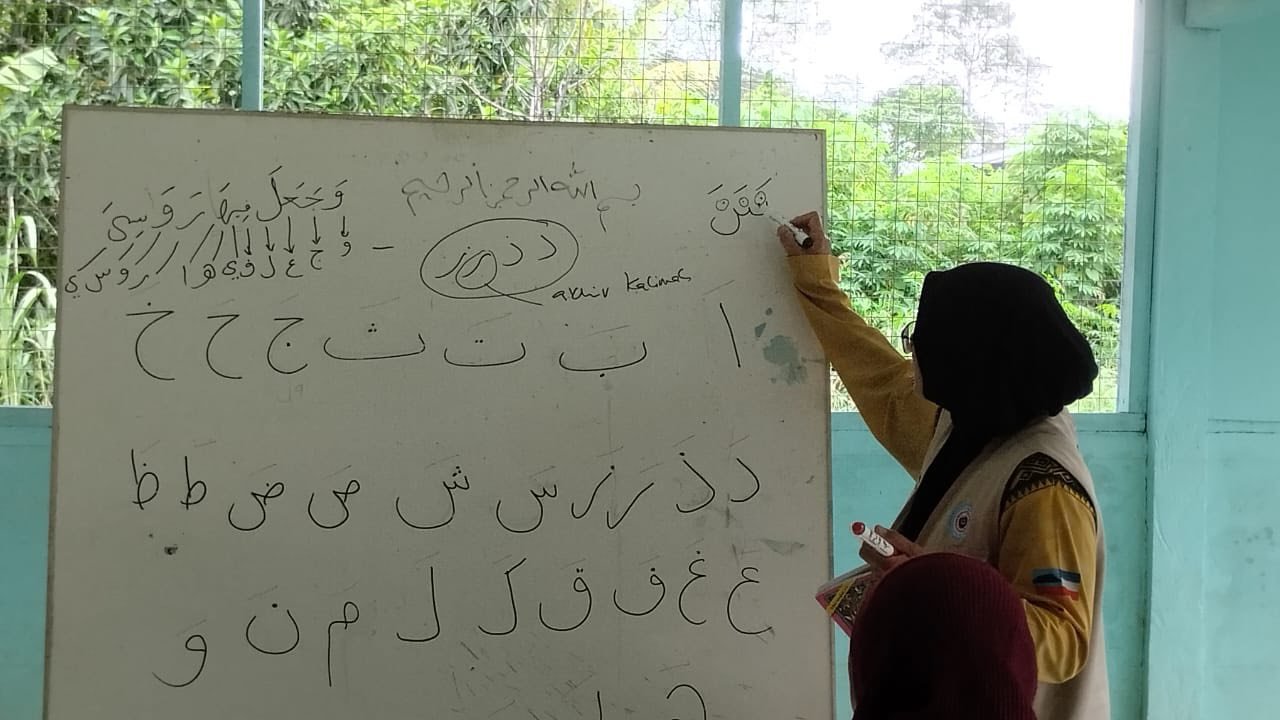 بسم الله الرحمن الرحيم
وَ جَعَلَ فِيهَا رَ وَ سِيَ
و ج ع ل في ها ر و س ي –
د ذ ر ز
akhir Kalimah
ا بَ تَ ثَ جَ حَ خَ
دَ ذَ رَ زَ سَ شَ صَ ضَ طَ ظَ
عَ غَ فَ قَ كَ لَ مَ نَ وَ